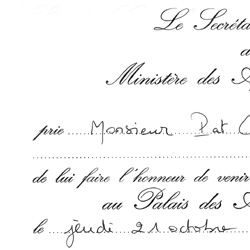 Le Secréta
a
Ministère des A
prie ...... Monsieur Pat
de lui faire l'honneur de venir
au Palais des A
le .. jeudi 21 octobre